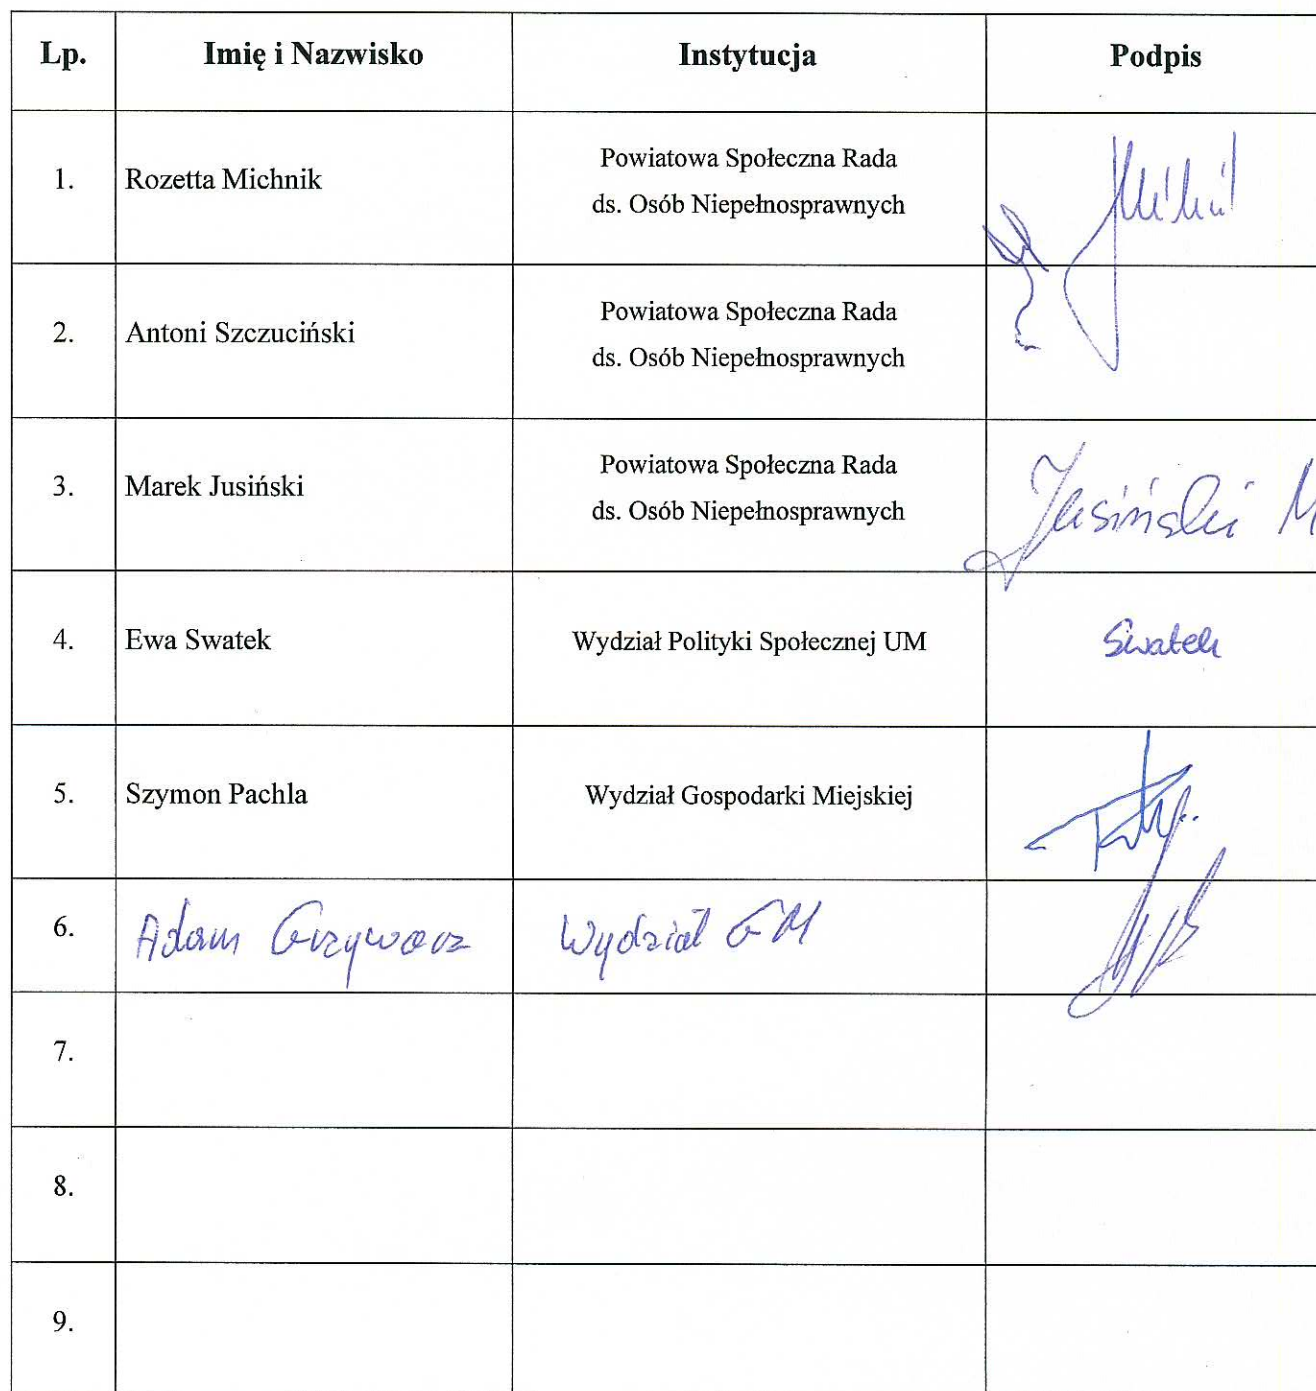 Lp. Imię i Nazwisko Instytucja Podpis
1. Rozetta Michnik Powiatowa Społeczna Rada
ds. Osób Niepełnosprawnych
2. Antoni Szczuciński Powiatowa Społeczna Rada
ds. Osób Niepełnosprawnych
3. Marek Jusiński Powiatowa Społeczna Rada
ds. Osób Niepełnosprawnych
Jusiński M
4. Ewa Swatek Wydział Polityki Społecznej UM Swatek
5. Szymon Pachla Wydział Gospodarki Miejskiej
6. Adam Grzywacz Wydział GM
7.
8.
9.